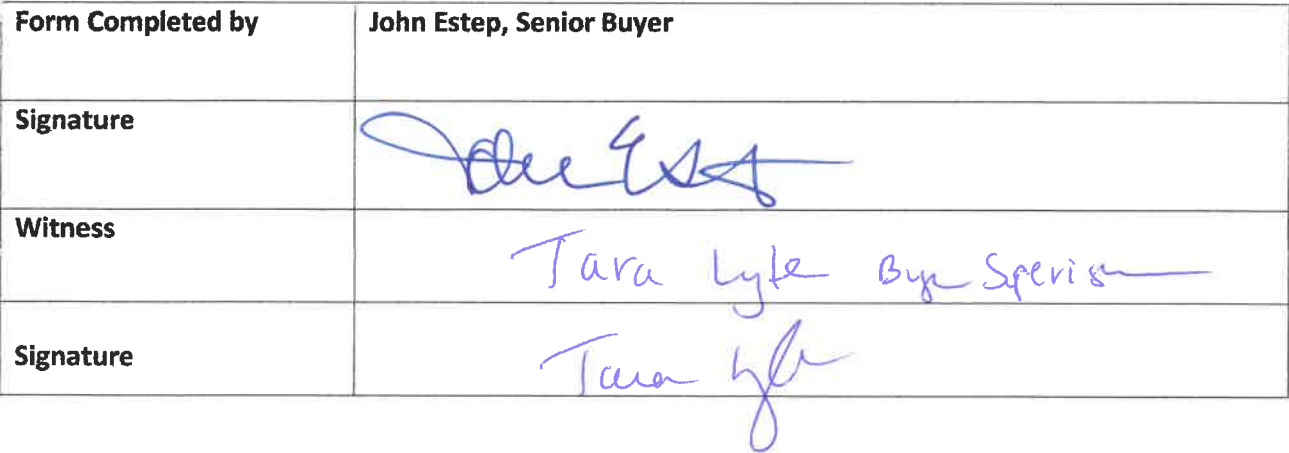 Form Completed by John Estep, Senior Buyer
Signature John Est
Witness Tara Lyle
Signature Tara Lyle